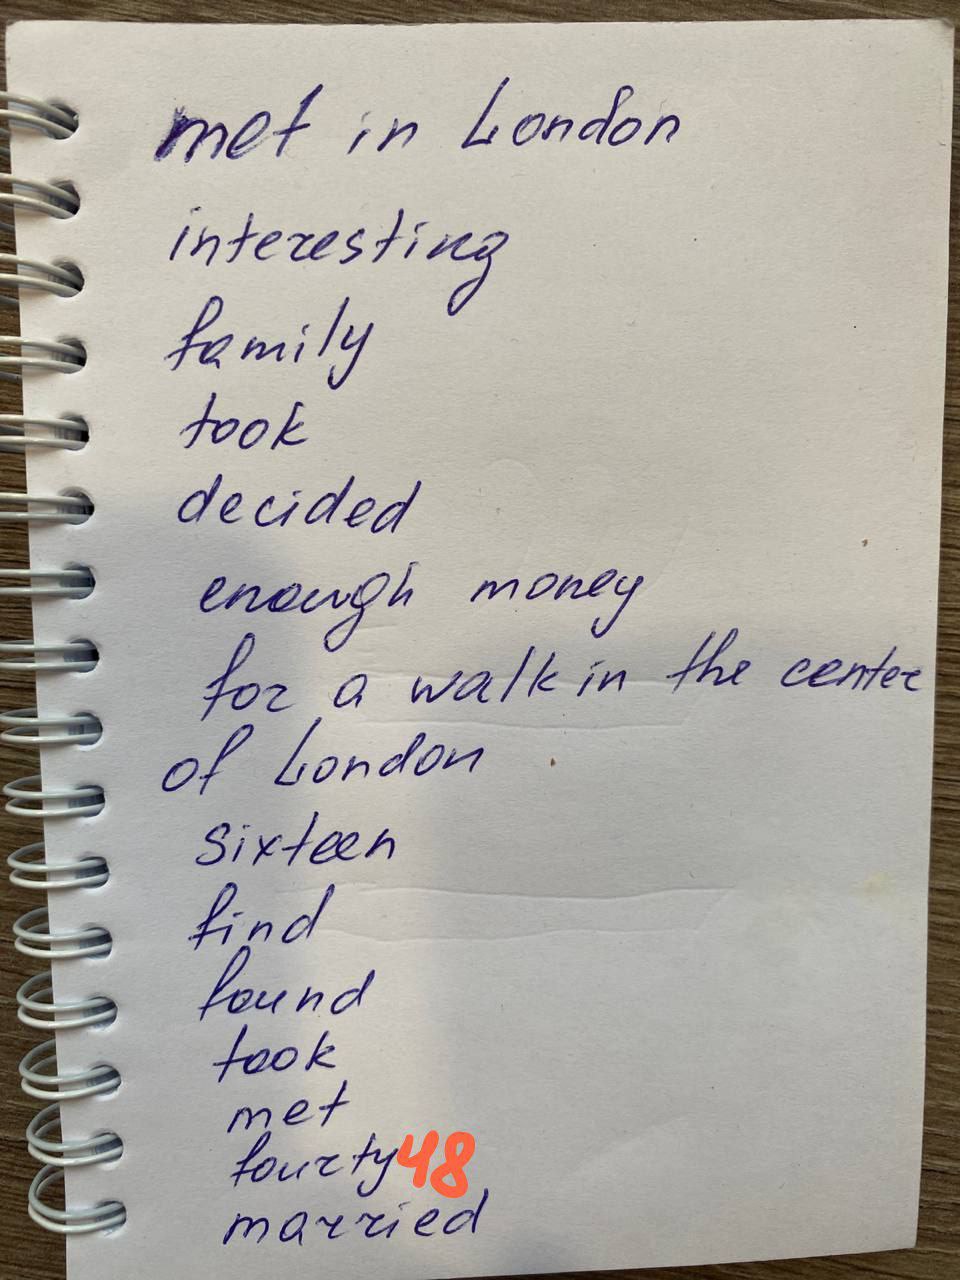 met in London
interesting
family
took
decided
enough money
for a walk in the center
of London
sixteen
find
found
took
met
fourty 48
married